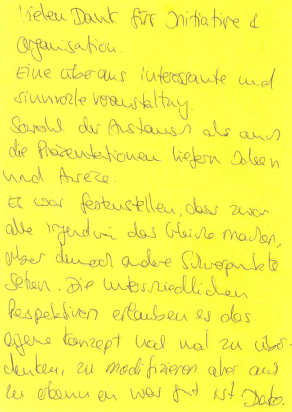 Vielen Dank für Initiative &
Organisation.
Eine überaus interessante und
sinnvolle Veranstaltung.
Sowohl der Austausch als auch
die Präsentationen liefern Ideen
und Anreize.
Es war festzustellen, dass zwar
alle irgendwie das Gleiche machen,
aber dennoch andere Schwerpunkte
sehen. Die unterschiedlichen
Perspektiven erlauben es das
eigene Konzept noch mal zu über-
denken, zu modifizieren aber auch
zu erkennen was gut ist. Danke.